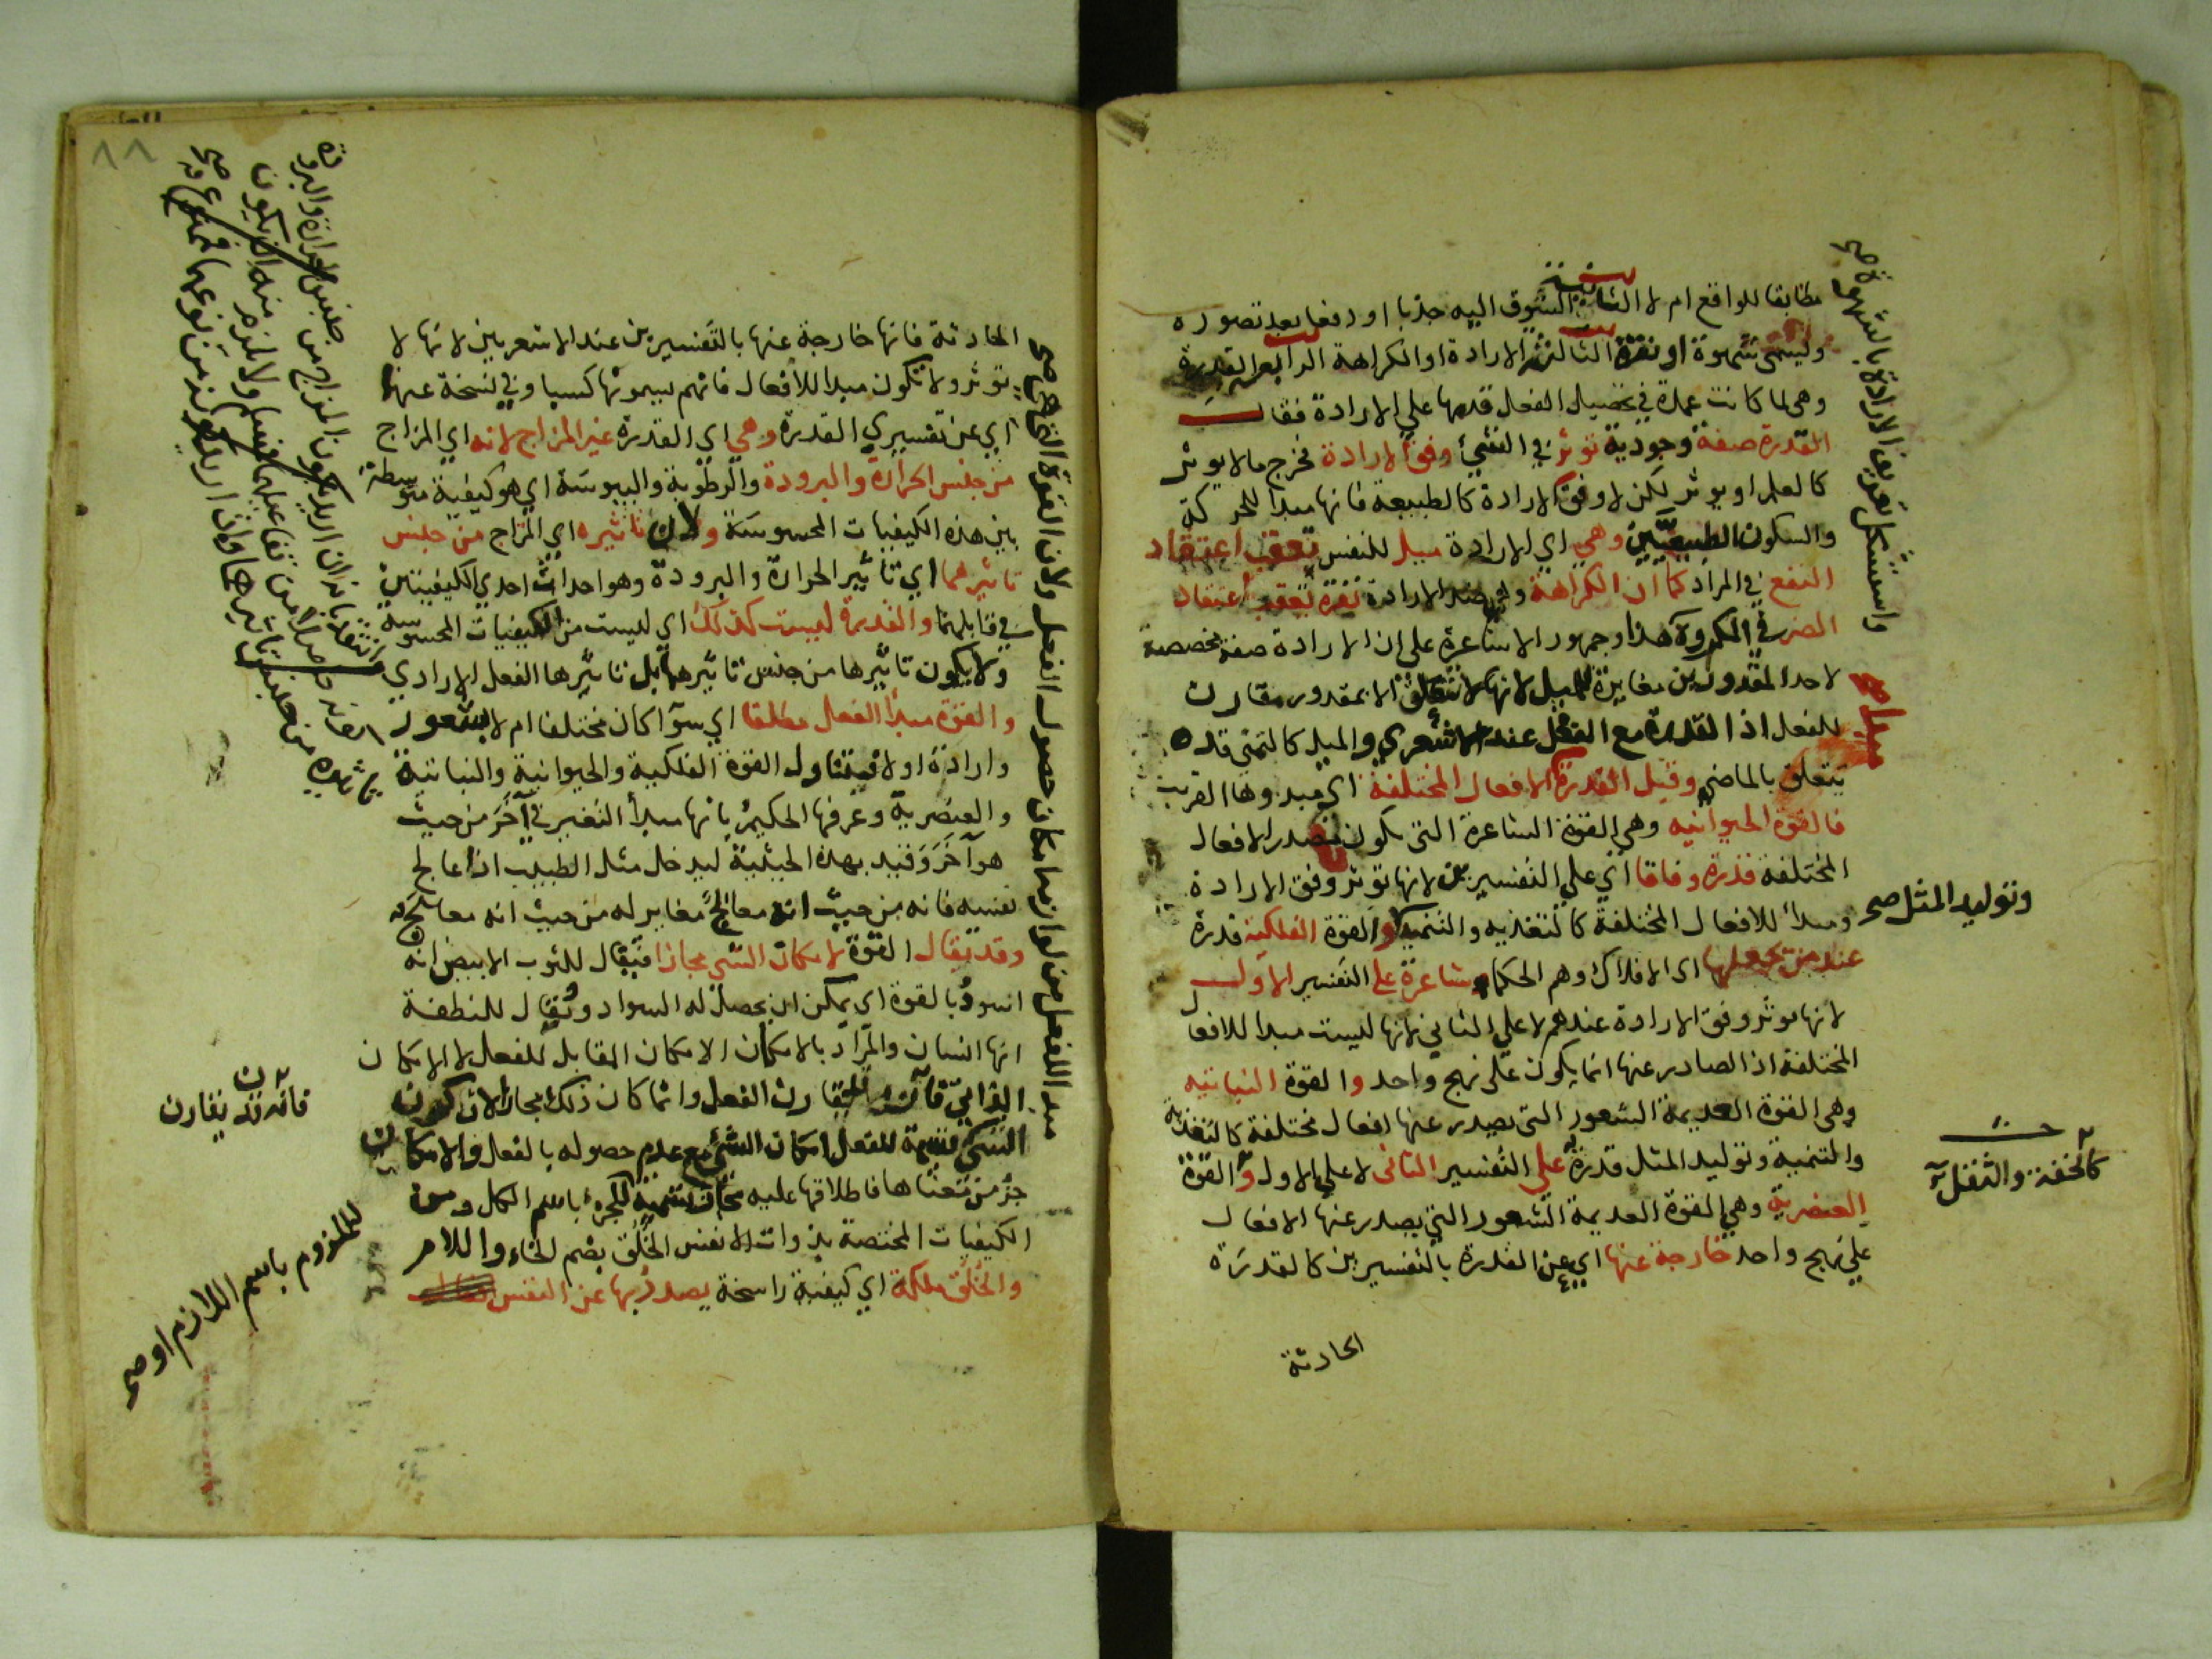 مطابقا للواقع ام لا الثانية الشوق اليه جذبا او دفعا بعد تصوره
وليسمى شهوة او نفرة الثالثة الارادة او الكراهة الرابعة القدرة
وهي لما كانت عمدة في تحصيل الفعل قدمها علي الارادة فقال
القدرة صفة وجودية توثر في الشيء وفق الارادة فخرج مالا يوثر
كالعلم او يوثر لكن لا وفق الارادة كالطبيعة فانها مبدا للحركة
والسكون الطبيعيين وهي اي الارادة ميل للنفس تعقب اعتقاد
النفع في المراد كما ان الكراهة وهي ضد الارادة نفرة تعقب اعتقاد
الضر في المكروه هذا وجمهور الاشاعرة علي ان الارادة صفة مخصصة
لاحد المقدورين مغايرة للميل لانها لا تتعلق الا بمقدور مقارن
للفعل اذ القدرة مع الفعل عند الاشعري والميل كالتمني قد
يتعلق بالماضي وقيل القدرة الافعال المختلفة اي مبدوها القريب
فالقوة الحيوانيه وهي القوة الشاعرة التي تكون مصدر الافعال
المختلفة قدرة وفاقا اي علي التفسيرين لانها توثر وفق الارادة
ومبدأ للافعال المختلفة كالتغذيه والتنميه والقوة الفلكية قدرة
عند من يجعلها اي الافلاك وهم الحكما شاعرة علي التفسير الاول
لانها توثر وفق الارادة عندهم لا علي الثاني لانها ليست مبدا للافعال
المختلفة اذ الصادر عنها انما يكون علي نهج واحد والقوة النباتيه
وهي القوة العديمة الشعور التي يصدر عنها افعال مختلفة كالتغذية
والتنمية وتوليد المثل قدرة علي التفسير الثاني لا علي الاول والقوة
العنصرية وهي القوة العديمة الشعور التي يصدر عنها الافعال
علي نهج واحد خارجة عنها اي عن القدرة بالتفسيرين كالقدرة
الحادثة
واستشكل تعريف الارادة بالشهوة صح
ميل صح
وتوليد المثل صح
كالخفة والثقل
٨٨
الحادثة فانها خارجة عنها بالتفسيرين عند الاشعريين لانها لا
توثر ولا تكون مبدا للافعال فانهم يسمونها كسبا وفي نسخة عنهما
اي عن تفسيري القدرة وهي اي القدرة غير المزاج لانه اي المزاج
من جنس الحرارة والبرودة والرطوبة واليبوسة اي هو كيفية متوسطة
بين هذه الكيفيات المحسوسة ولان تاثيره اي المزاج من جنس
تاثيرهما اي تاثير الحرارة والبرودة وهو احداث احدي الكيفيتين
في قابلها والقدرة ليست كذلك اي ليست من الكيفيات المحسوسة
ولا يكون تاثيرها من جنس تاثيرها بل تاثيرها الفعل الارادي
والقوة مبدأ الفعل مطلقا اي سوآ كان مختلفا ام لا بشعور
وارادة او لا فيتناول القوة الفلكية والحيوانية والنباتية
والعنصرية وعرفها الحكيم بانها مبدأ التغير في آخر من حيث
هو آخر وقيد بهذه الحيثية ليدخل مثل الطبيب اذا عالج
نفسه فانه من حيث انه معالج مغاير له من حيث انه معالج
وقد يقال القوة لامكان الشي مجازا فيقال للثوب الابيض انه
اسود بالقوة اي يمكن ان يحصل له السواد ويقال للنطفة
انها انسان والمراد بالامكان الامكان المقابل للفعل لا الامكان
الذاتي فانه المقارن الفعل وانما كان ذلك مجازا لان كون
الشي للفعل امكان الشي مع عدم حصوله بالفعل والامكان
جزء من معناها فاطلاقها عليه مجاز تسمية للجزء باسم الكل ومن
الكيفيات المختصة بذوات الانفس الخلق بضم الخاء واللام
والخلق ملكة اي كيفية راسخة يصدر بها عن النفس
مبدا للفعل من لوازمها امكان حصول الفعل ولان القوة
فانه قد يقارن
للملزوم باسم اللازم او صح